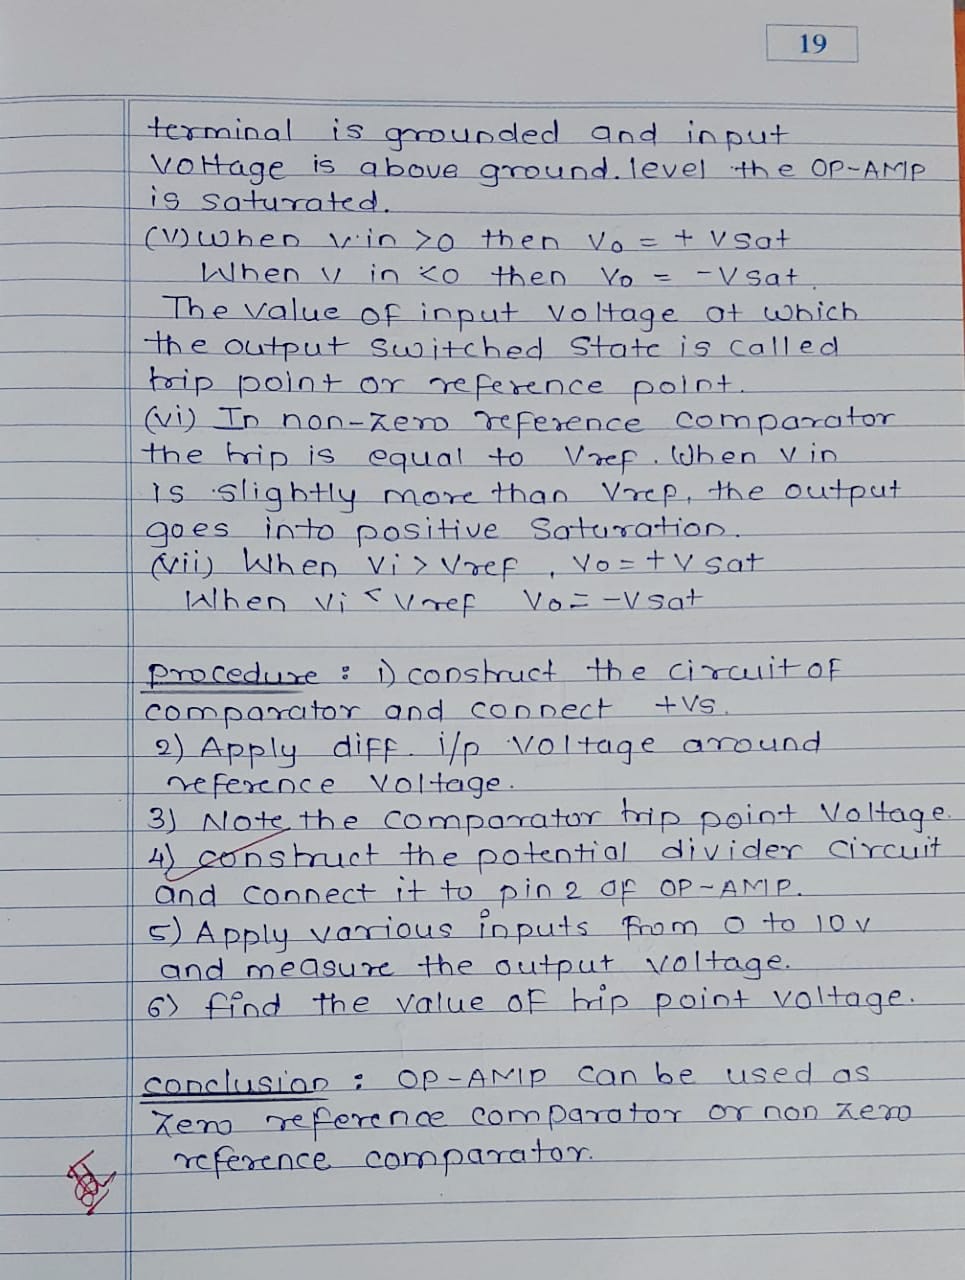 19
terminal is grounded and input
voltage is above ground. level the OP-AMP
is saturated.
(V) When v.in >0 then Vo = + Vsat
When v in <0 then Vo = -Vsat.
The value of input voltage at which
the output switched state is called
trip point or reference point.
(vi) In non-zero reference comparator
the trip is equal to Vref. When v in
is slightly more than Vrep, the output
goes into positive saturation.
(vii) When Vi > Vref , Vo = + Vsat
When Vi < Vref Vo = -Vsat
procedure : i) construct the circuit of
comparator and connect +Vs.
2) Apply diff. i/p voltage around
reference voltage.
3) Note the comparator trip point voltage.
4) construct the potential divider circuit
and connect it to pin 2 of OP-AMP.
5) Apply various inputs from 0 to 10v
and measure the output voltage.
6) find the value of trip point voltage.
conclusion : OP-AMP can be used as
zero reference comparator or non zero
reference comparator.